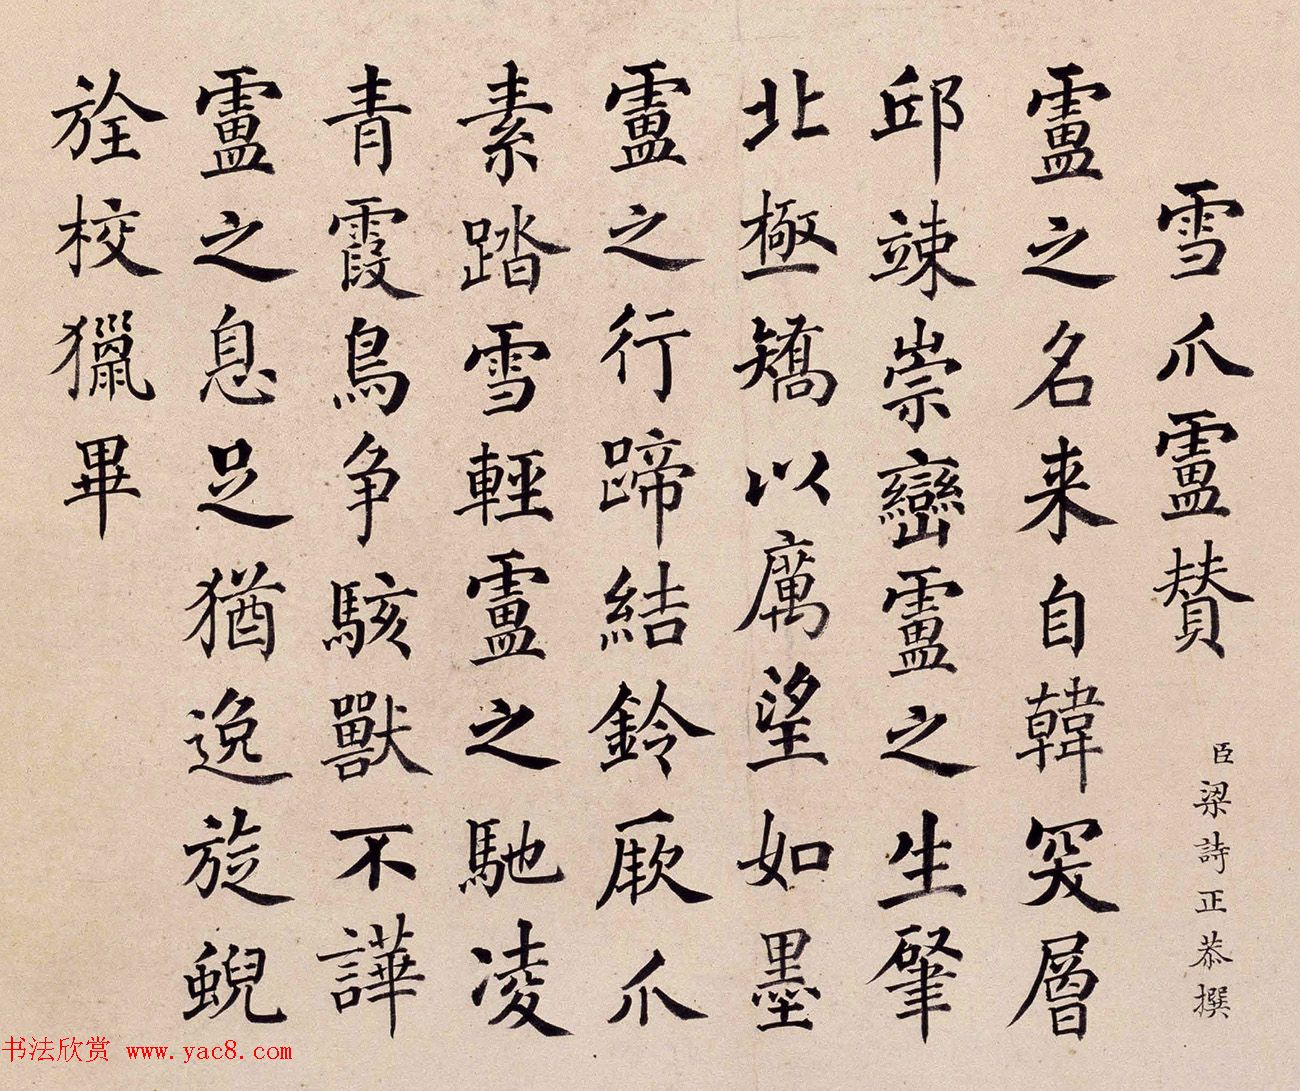 雪爪盧賛
臣梁詩正恭撰
盧之名来自韓突層
邱竦崇巒盧之生肇
北極矯以厲望如墨
盧之行蹄結鈴厥爪
素踏雪輕盧之馳凌
青霞鳥争駭獸不譁
盧之息足猶逸旋蜺
旌校獵畢
书法欣赏 www.yac8.com